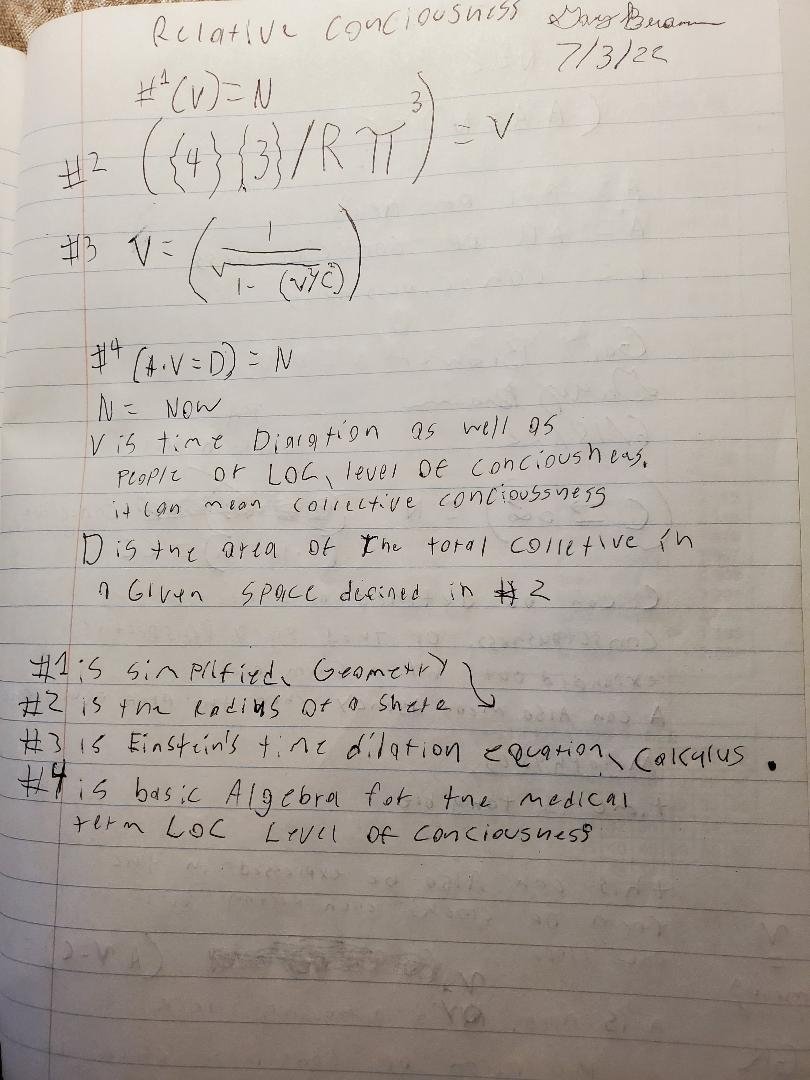 Relative Conciousness
7/3/22
#1 (V) = N
#2 ({4} {3}/R π³) = V
#3 V = (1/√1- (v²/c²))
#4 (A.V=D) = N
N = Now
V is time Diaration as well as
People or LOC, level of conciousheas.
it can mean collective concioussness
D is the area of the total colletive in
a Given space defined in #2
#1 is simplified, Geometry
#2 is the Radius of a shere
#3 is Einstein's time dilation equation, Calculus.
#4 is basic Algebra for the medical
term LOC Level of conciousness